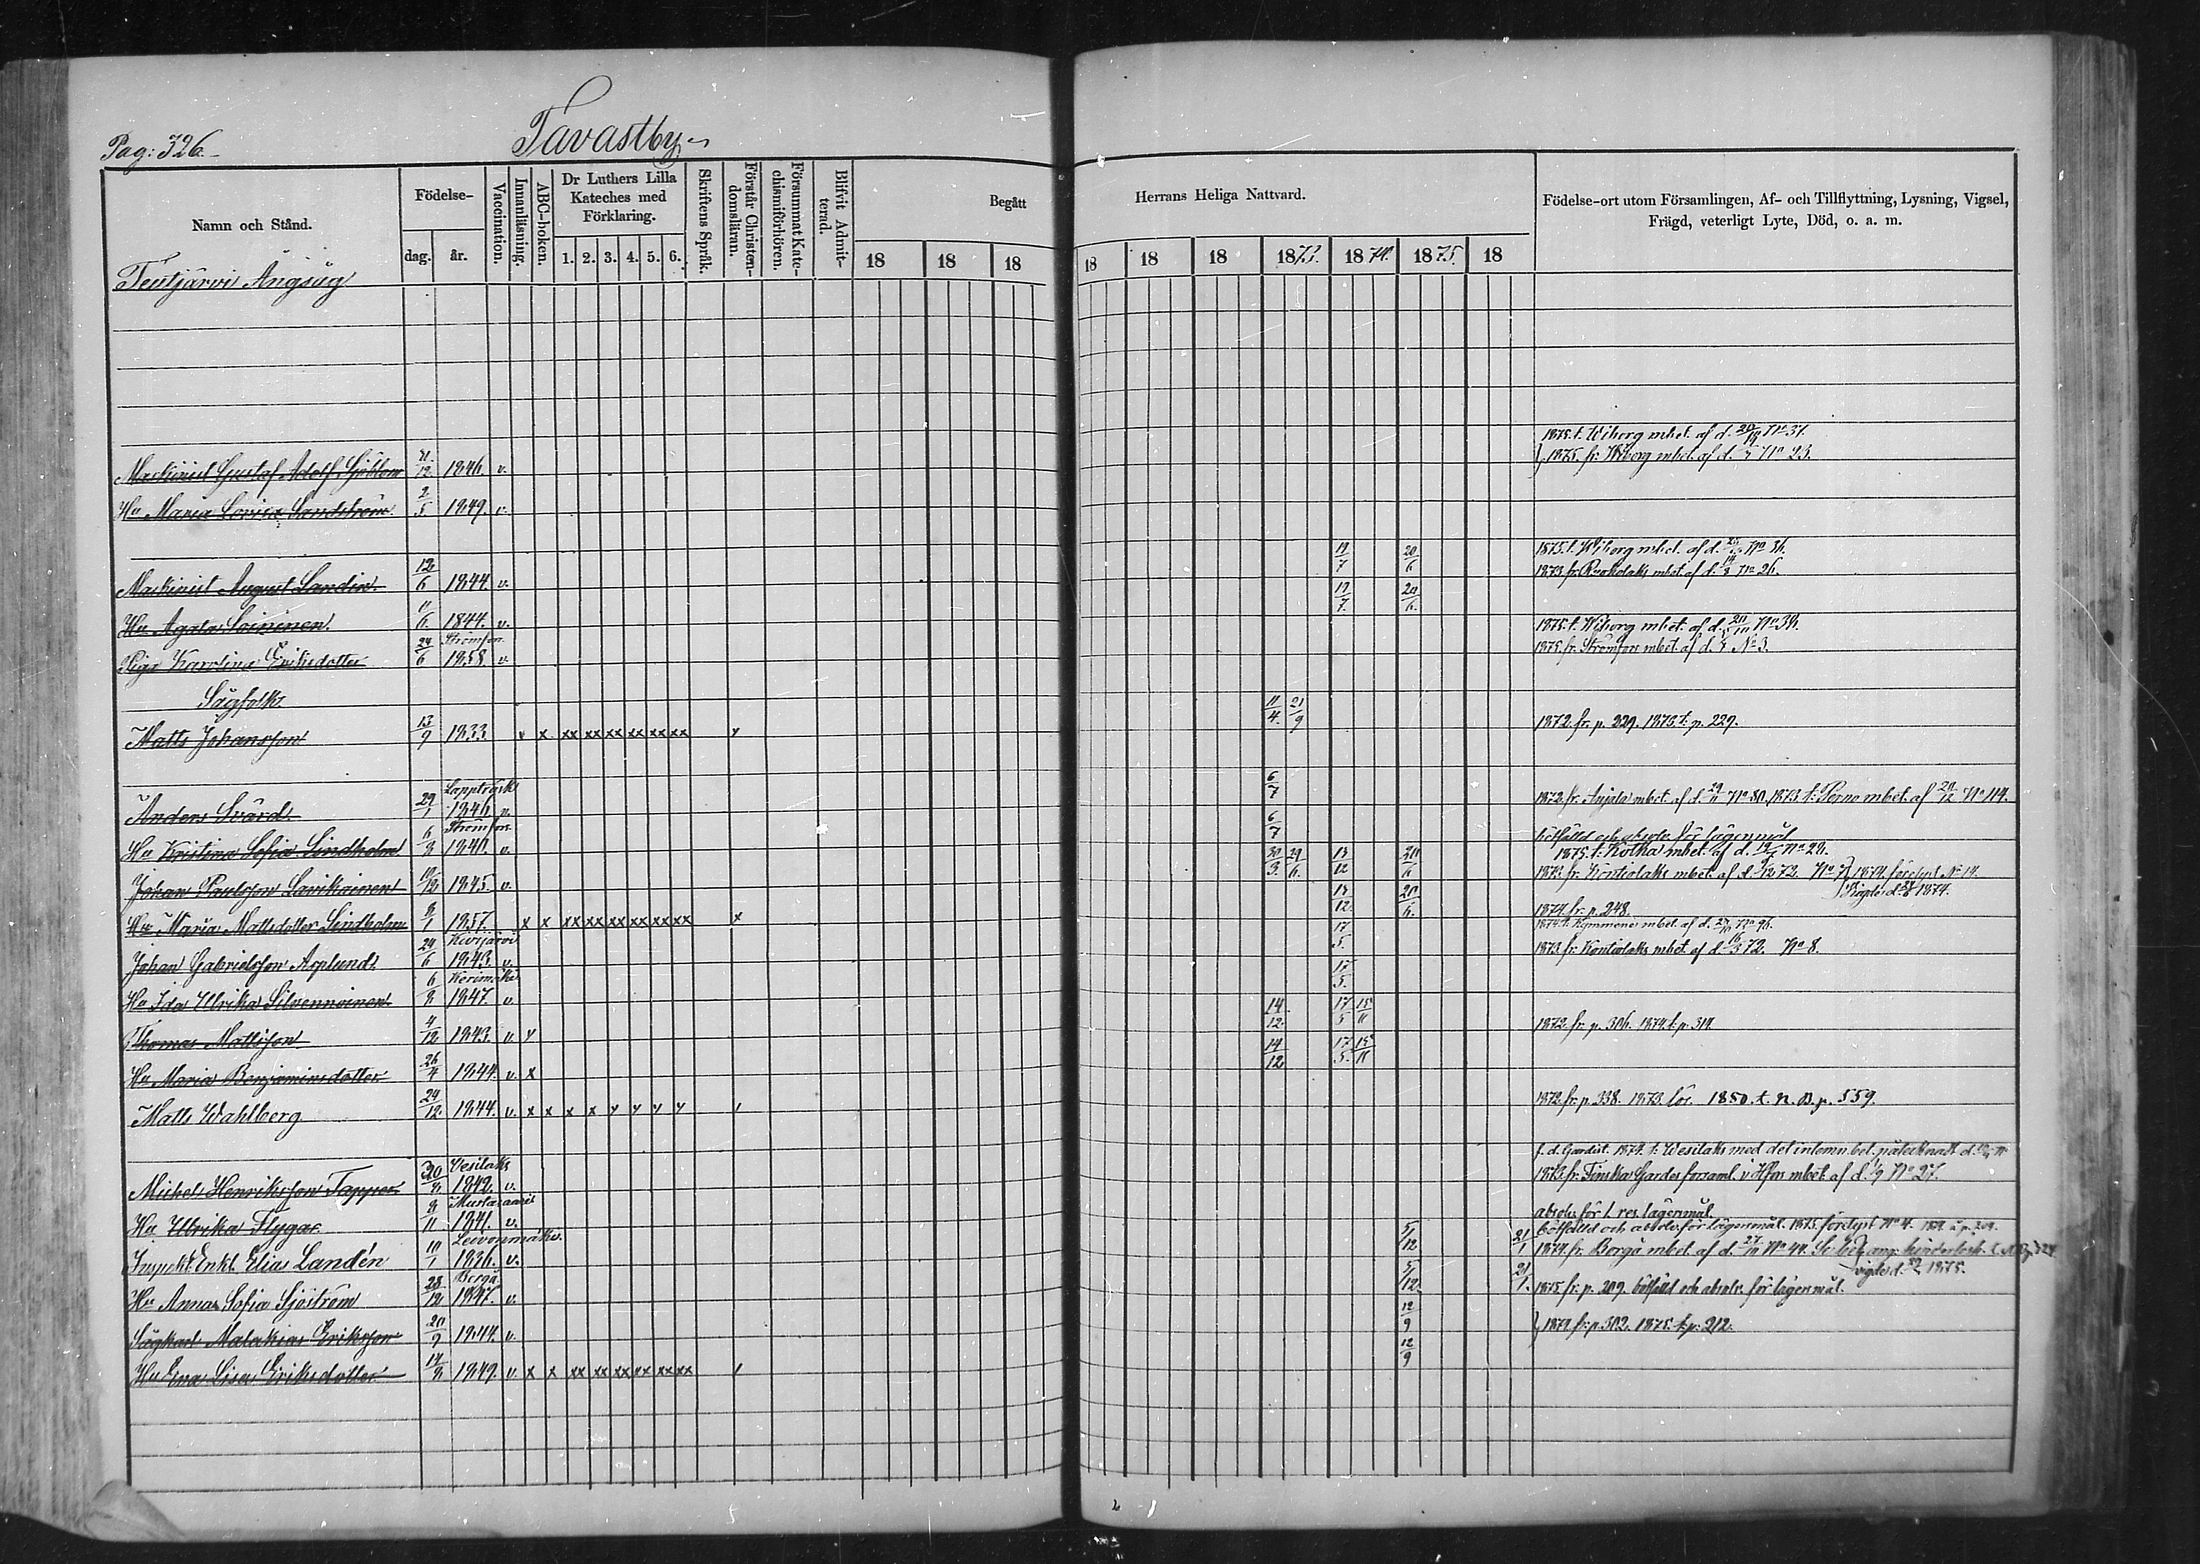 Pag: 326.
Tavastby
Namn och Stånd.
Födelse-
dag.
år.
Vaccination.
Innanläsning.
ABC-boken.
Dr Luthers Lilla
Kateches med
Förklaring.
1. 2. 3. 4. 5. 6.
Skriftens Språk.
Förstår Christen-
domsläran.
Försummat Kate-
chismiförhören.
Blifvit Admit-
terad.
Begått
Herrans Heliga Nattvard.
18 18 18 18 18 18 1873. 1874. 1875. 18
Födelse-ort utom Församlingen, Af- och Tillflyttning, Lysning, Vigsel,
Frägd, veterligt Lyte, Död, o. a. m.
Teutjärvi Ångsåg
1875. t. Wiborg mbet. af d. 20/10 No 37.
Maskinist Gustaf Adolf 21/12 1846. v. 1875. fr. Wiborg mbet. af d. No 23.
Hu Maria Lovisa Sandström. 2/5. 1849. v.
1875. t. Wiborg mbet. af d. No 36.
Maskinist August Landin. 12/6 1844. v. 19/7 20/6 1873. fr. af d. No 26.
Hu Agata Soininen. 11/6. 1844. v. 19/7. 20/6.
1875. t. Wiborg mbet. af d. 20/10 No 38.
Piga Karolina Eriksdotter 24/6 Strömfors 1858. v. 1875. fr. Strömfors mbet. af d. No 3.
Sågfolk.
Matts Johansson 13/9 1833 x x xx xx xx xx xx xx x 11/4. 21/9 1872. fr. p. 229. 1873. t. p. 229.
Anders Svärd. 29/1 Lappträsk 1846. v. 6/7 1872. fr. Anjala mbet. af d. 29/11 No 80. 1873. t. Perno mbet. af 20/12 No 114.
Hu Kristina Sofia Lindholm 6/8 Strömfors 1840. v. 6/7 bötfälld och absolv. för lägersmål
1875. t. Kotka mbet. af d. No 29.
Johan Paulsson Lavikainen 10/12 1845. v. 30/3. 29/6. 13/12 20/6 1873. fr. Kontiolaks mbet. af d. 72. No 7 1874. förelyst No 19.
Vigde d. 1874.
Hu Maria Mattsdotter Lindholm 8/1 1857. x x xx xx xx xx xx xx x 13/12. 20/6. 1874. fr. p. 248.
1874. t. Kymmene mbet. af d. No 96.
Johan Gabrielsson Asplund. 24/6 Kivijärvi 1843. v. 17/5. 1873. fr. Kontiolaks mbet. af d. 72. No 8.
Hu Ida Ulrika Silvennoinen. 6/8 Kerimäki 1847. v. 17/5.
Thomas Mattsson. 4/12 1843. v. x 14/12. 17/5 15/11 1872. fr. p. 306. 1874. t. p. 314.
Hu Maria Benjaminsdotter 26/4 1844. v. x 14/12 17/5. 15/11
Matts Wahlberg 24/12 1844. v. x x x x x x x x 1872. fr. p. 338. 1873. lös. 1880. t. n. B. p. 559.
f. d. Gardist. 1874. t. Wesilaks med det inlemn. bet. påtecknadt d.
Michel Henriksson Tapper 30/8 Vesilaks 1842. v. 1873. fr. Finska Gardes församl. i Hfors mbet. af d. 1/9 No 27.
Hu Ulrika Flygar 8/11 Mustasaari 1841. v. absolv. för 1. res. lägersmål.
bötfälld och absolv. för lägersmål. 1875. förelyst No 4.
Inspekt. Enkl. Elias Landén 10/1 Leivonmäki. 1836. v. 5/12 21/1 1874. fr. Borgå mbet. af d. 27/10 No 44.
vigde d. 1875.
Hu Anna Sofia Sjöström 28/12 Borgå 1847. v. 5/12. 21/1. 1875. fr. p. 209. bötfälld och absolv. för lägersmål.
Sågkarl Malakias Eriksson 20/9 1844. v. 12/9 1874. fr. p. 302. 1875. t. p. 212.
Hu Eva Lisa Eriksdotter 14/8 1849. v. x x xx xx xx xx xx xx 12/9